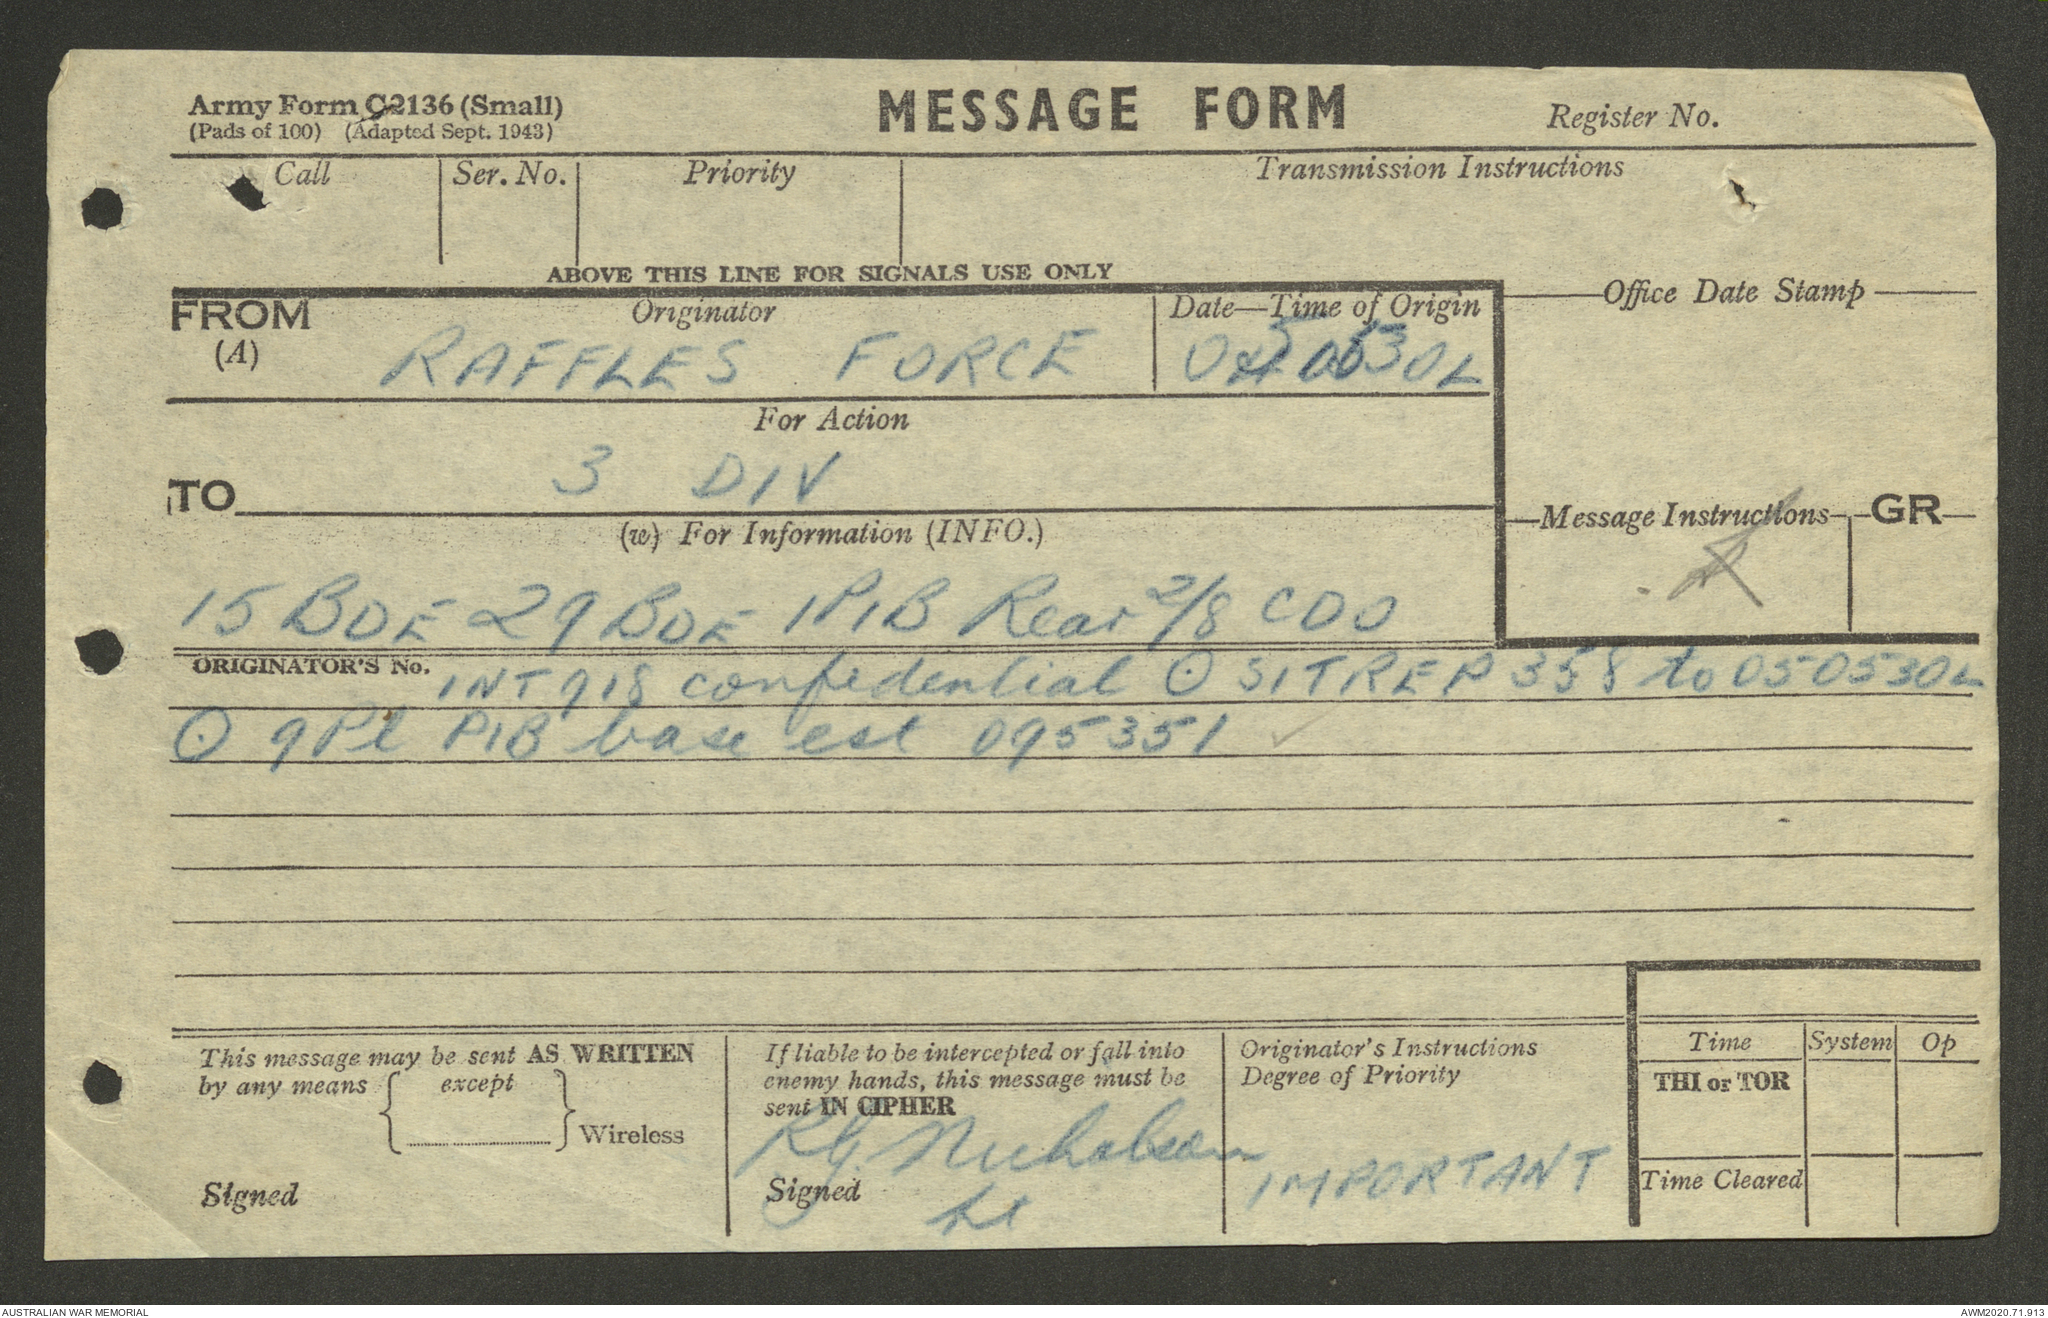 Army Form C2136 (Small)
(Pads of 100) (Adapted Sept. 1943)
MESSAGE FORM
Register No.
Call
Ser. No.
Priority
Transmission Instructions
ABOVE THIS LINE FOR SIGNALS USE ONLY
FROM
(A)
Originator
RAFFLES FORCE
Date—Time of Origin
050530L
Office Date Stamp
For Action
TO
3 DIV
(w) For Information (INFO.)
Message Instructions
GR
15 BDE 29 BDE 1PIB Rear 2/8 CDO
ORIGINATOR'S No.
INT 918 confedential ⊙ SITREP 358 to 050530L
⊙ 9Pl PIB base est 095351
This message may be sent AS WRITTEN
by any means { except } Wireless
Signed
If liable to be intercepted or fall into
enemy hands, this message must be
sent IN CIPHER
Nicholson
Signed
Lt
Originator's Instructions
Degree of Priority
IMPORTANT
Time
System
Op
THI or TOR
Time Cleared
AUSTRALIAN WAR MEMORIAL
AWM2020.71.913